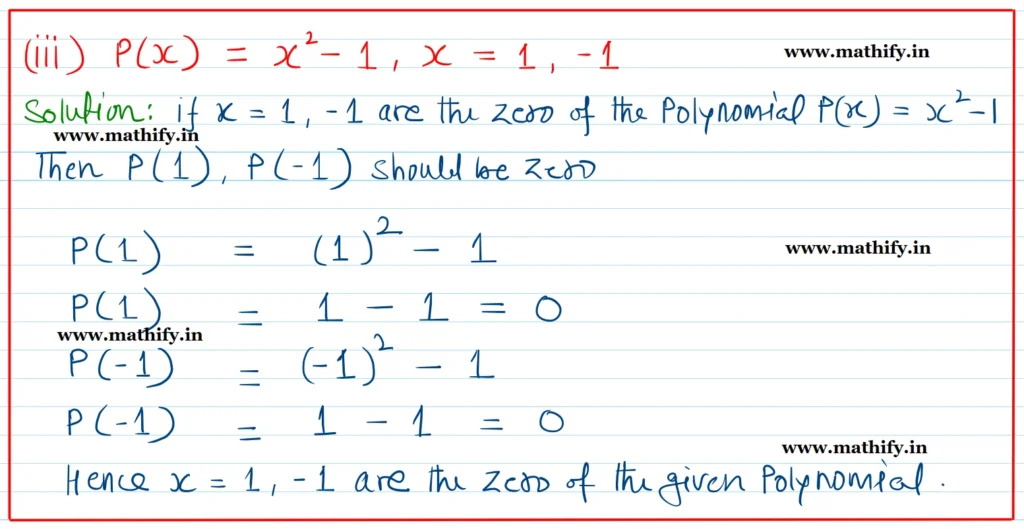 (iii) P(x) = x² - 1, x = 1, -1
www.mathify.in
Solution: if x = 1, -1 are the zero of the Polynomial P(x) = x² - 1
www.mathify.in
Then P(1), P(-1) should be zero
P(1) = (1)² - 1
www.mathify.in
P(1) = 1 - 1 = 0
www.mathify.in
P(-1) = (-1)² - 1
P(-1) = 1 - 1 = 0
www.mathify.in
Hence x = 1, -1 are the zero of the given Polynomial.